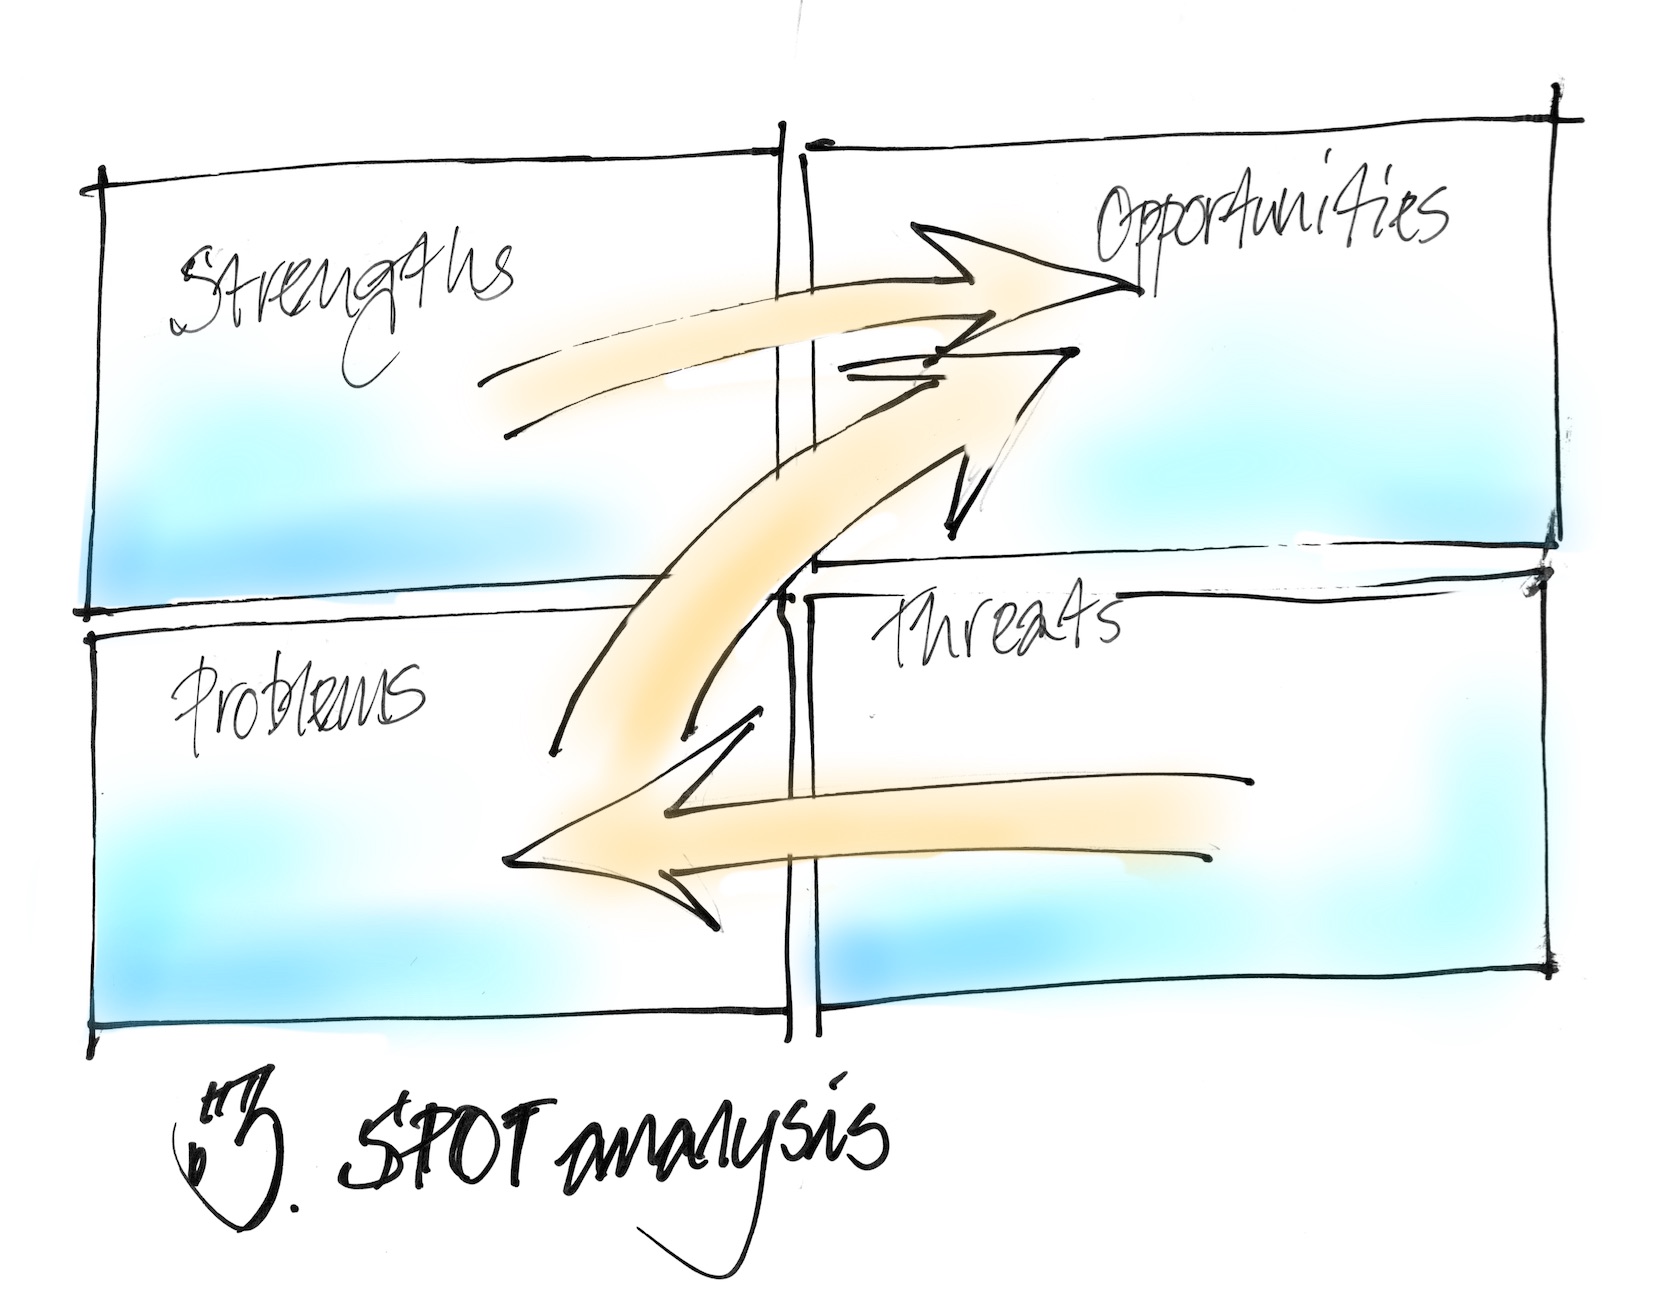 Strengths
Opportunities
Problems
threats
SPOT analysis